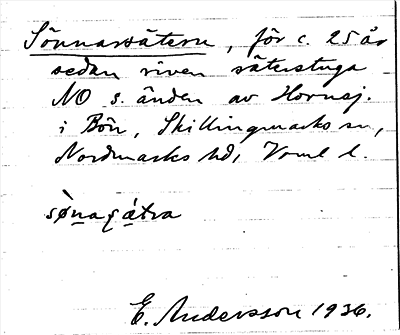 Sönnarsätern, för c. 25 år
sedan riven säterstuga
NO s. änden av Hornsj.
i Bön, Skillingmarks sn,
Nordmarks hd, Vrml l.
sø̀nasǽtra
E. Andersson 1936.